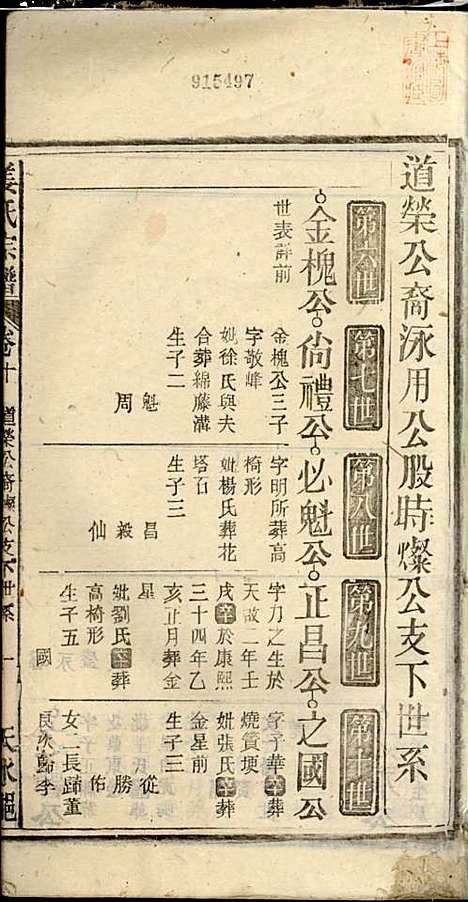 915497
道榮公裔泳用公股時燦公支下世系
第六世
第七世
第八世
第九世
第十世
金槐公
尙禮公
必魁公
正昌公
之國公
世表詳前
金槐公三子
字敬峰
妣徐氏與夫
合葬綿藤溝
生子二
魁
周
字明所葬高
椅形
妣楊氏葬花
塔石
生子三
昌
毅
仙
字力之生於
天啟二年壬
戌卒於康熙
三十四年乙
亥正月葬金
星
妣劉氏卒葬
高椅形
生子五
國
字子華卒葬
燒簣墺
妣張氏卒葬
金星前
生子三
從
勝
佑
女二長歸董
良次歸李
姜氏宗譜
卷十
道榮公裔燦公支下世系
一
天水